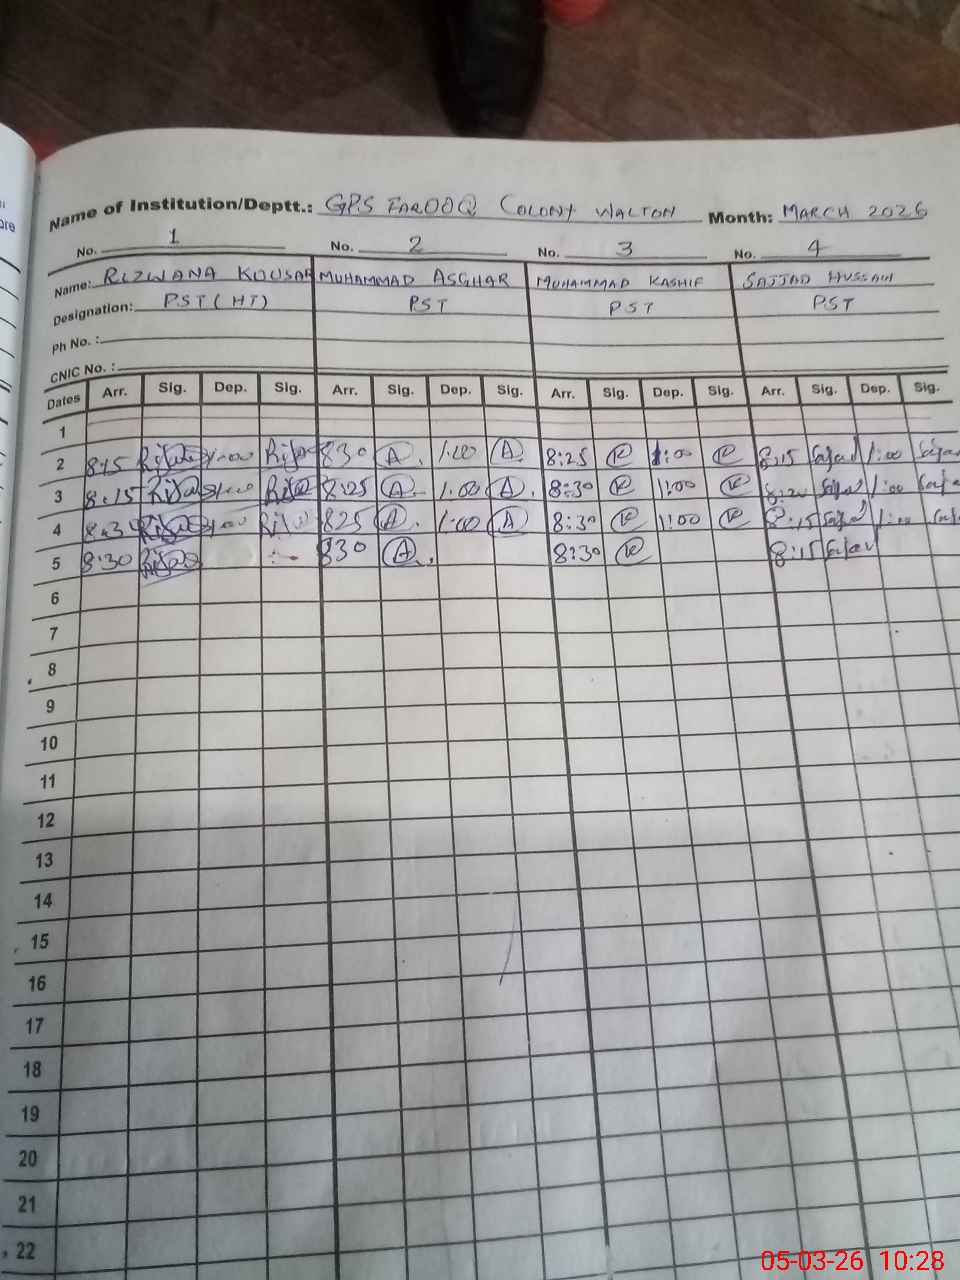 ore
Name of Institution/Deptt.: GPS FAROOQ COLONY WALTON Month: MARCH 2026
No. 1 No. 2 No. 3 No. 4
Name: RIZWANA KOUSAR MUHAMMAD ASGHAR MUHAMMAD KASHIF SAJJAD HUSSAIN
Designation: PST (HT) PST PST PST
Ph No. :
CNIC No. :
Dates Arr. Sig. Dep. Sig. Arr. Sig. Dep. Sig. Arr. Sig. Dep. Sig. Arr. Sig. Dep. Sig.
1
2 8:15 1:00 830 A 1:00 A 8:25 K 1:00 K 8:15 Sajad 1:00
3 8:15 1:00 8:25 A 1:00 A 8:30 K 1:00 K 8:20 Sajad 1:00
4 8:30 1:00 825 A 1:00 A 8:30 K 1:00 K 8:15 Sajad 1:00
5 8:30 830 A 8:30 K 8:15 Sajad
6
7
8
9
10
11
12
13
14
15
16
17
18
19
20
21
22
05-03-26 10:28